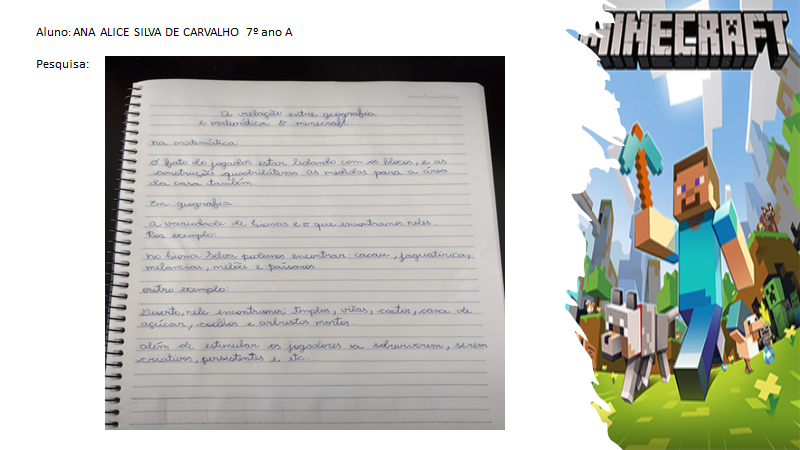 Aluno: ANA ALICE SILVA DE CARVALHO 7º ano A
MINECRAFT
Pesquisa:
A relação entre geografia
e matemática & minecraft.
na matemática
O fato do jogador estar lidando com os blocos, e as
construções quadriláteras. as medidas para a área
da casa também
Em geografia
a variedade de biomas e o que encontramos neles.
Por exemplo:
no bioma Selva podemos encontrar cacau, jaguatirica,
melancias, melões e pássaros
outro exemplo:
Deserto, nele encontramos, templos, vilas, cactos, cana de
açúcar, coelhos e arbustos mortos.
além de estimular os jogadores a sobreviverem, serem
criativos, persistentes e etc...